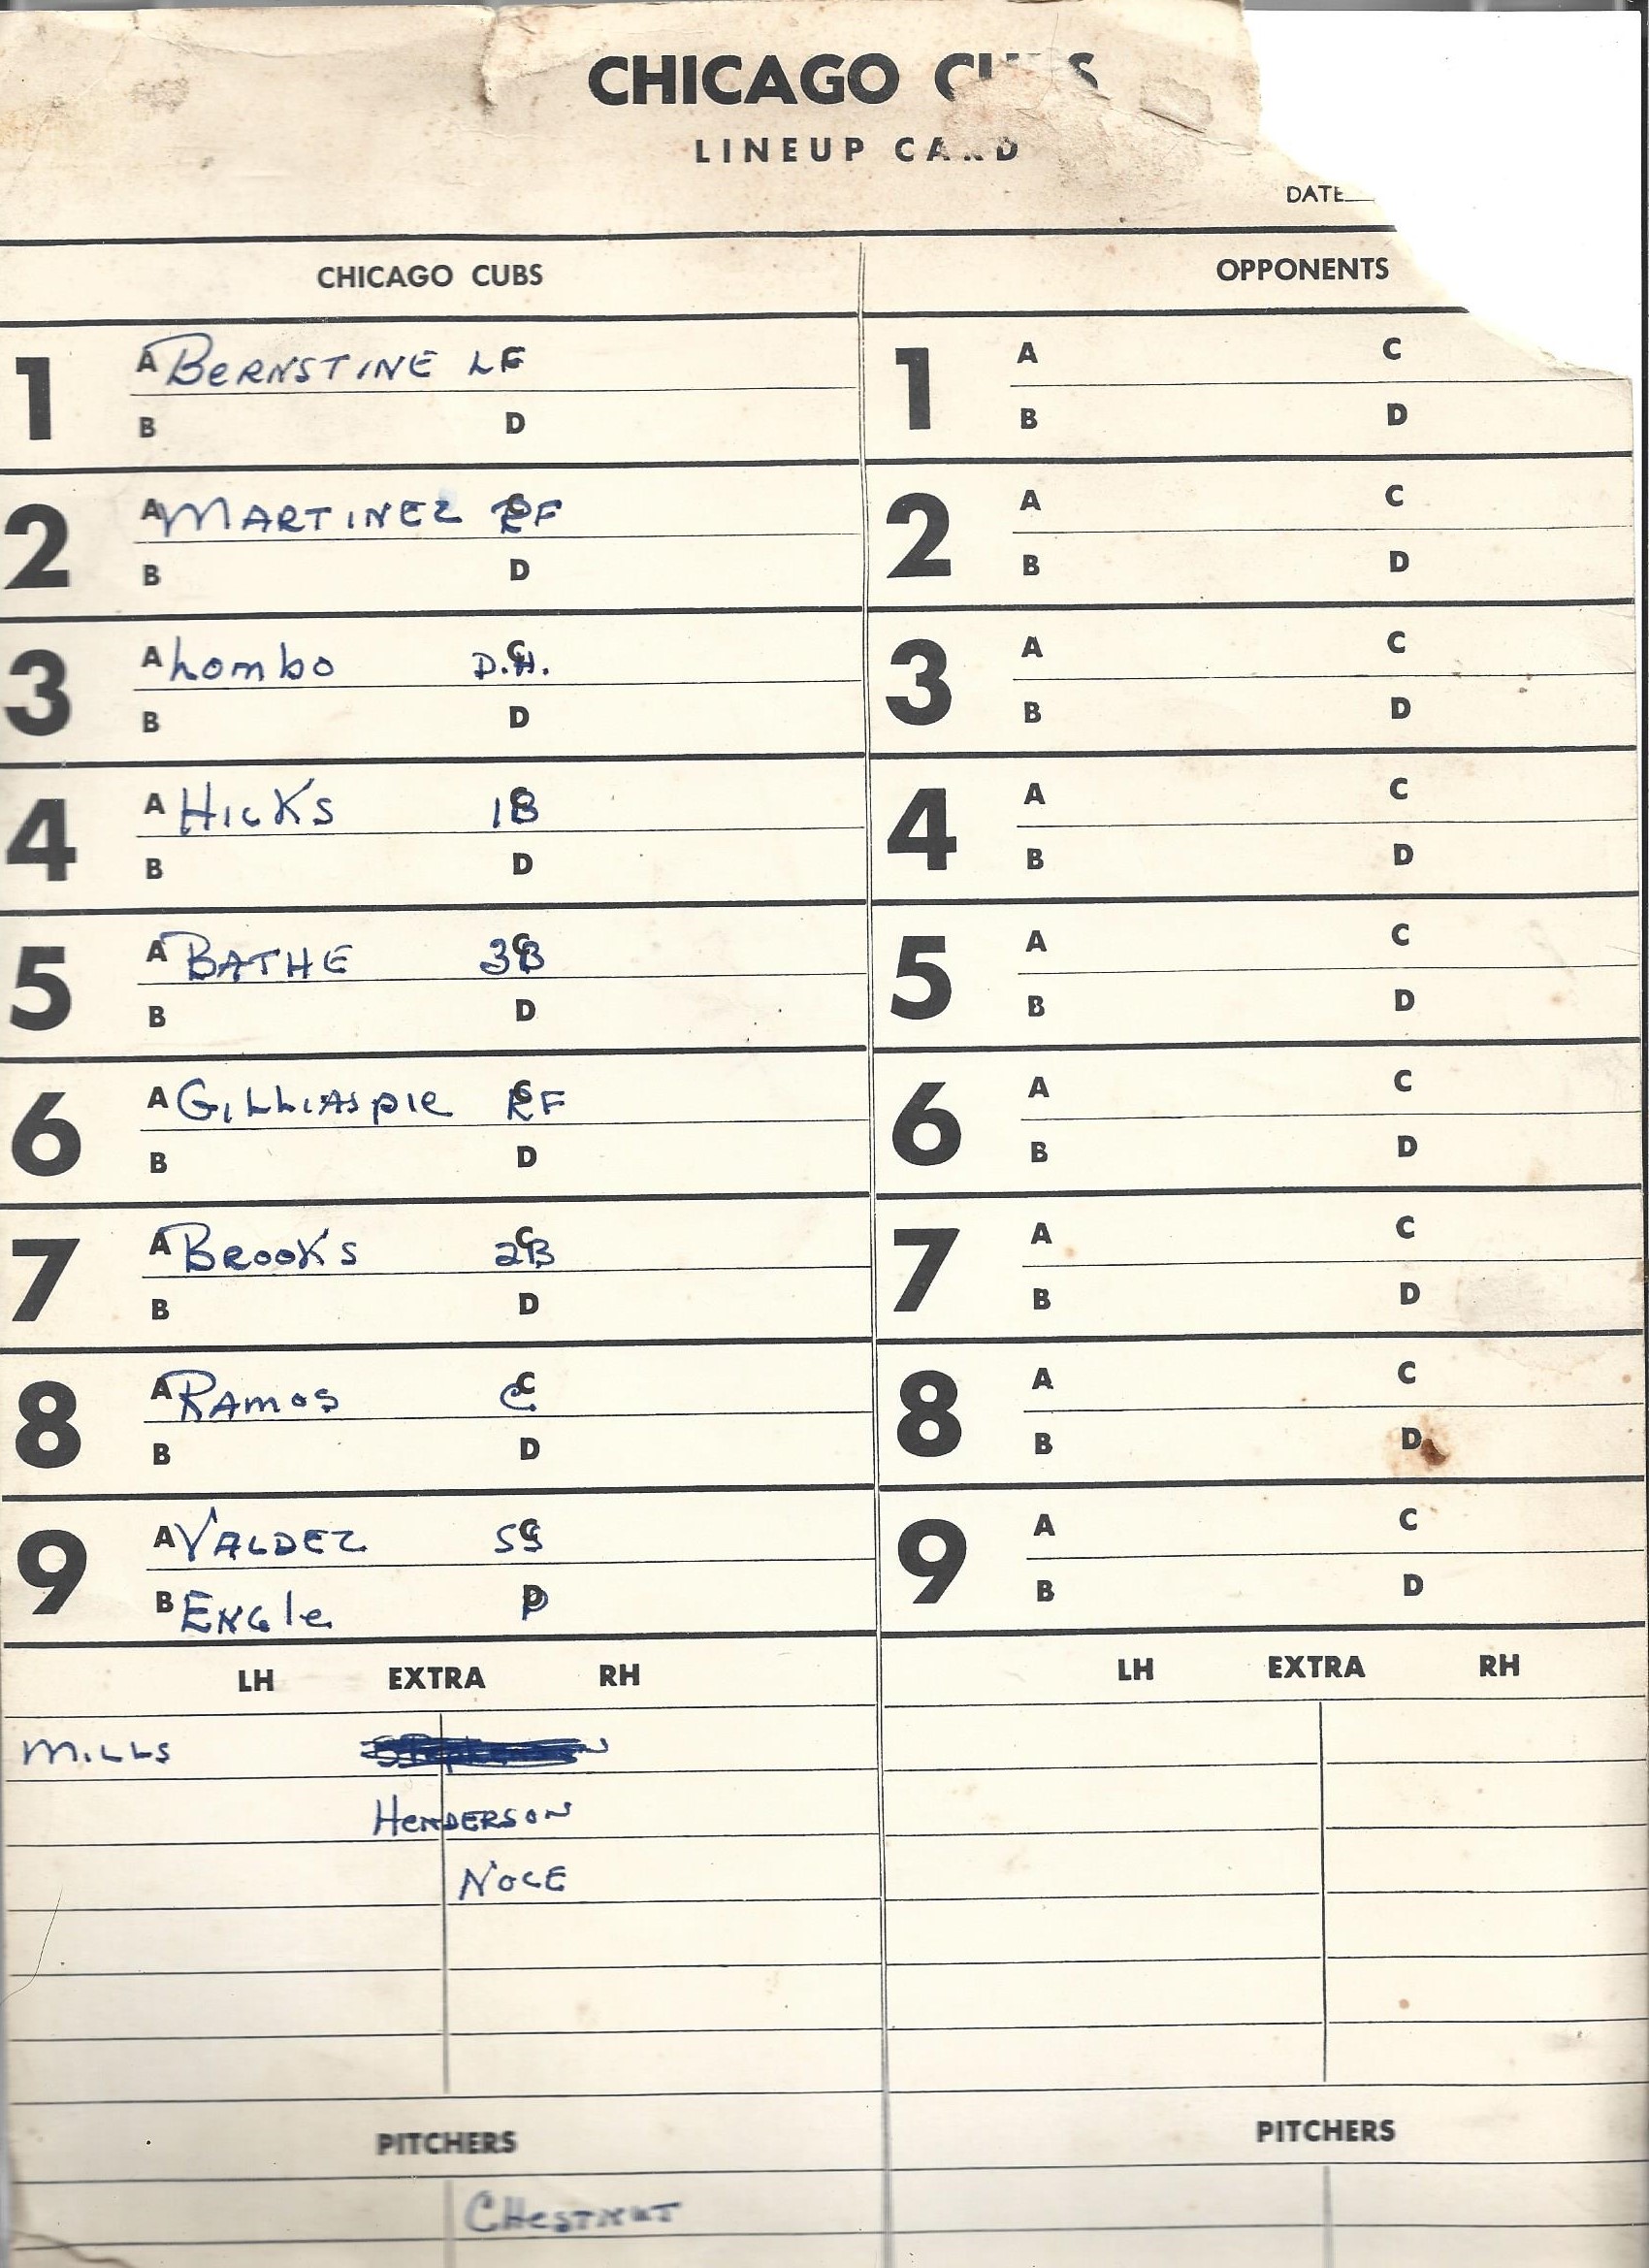 CHICAGO CUBS
LINEUP CARD
DATE
CHICAGO CUBS
OPPONENTS
1 A BERNSTINE LF
B D
2 A MARTINEZ C RF
B D
3 A Lombo C D.H.
B D
4 A HICKS C 1B
B D
5 A BATHE C 3B
B D
6 A GILLIASPIE C RF
B D
7 A BROOKS C 2B
B D
8 A RAMOS C C
B D
9 A VALDEZ C SS
B ENGle D P
LH EXTRA RH
MILLS
HENDERSON
NOCE
PITCHERS
CHESTNUT
1 A C
B D
2 A C
B D
3 A C
B D
4 A C
B D
5 A C
B D
6 A C
B D
7 A C
B D
8 A C
B D
9 A C
B D
LH EXTRA RH
PITCHERS